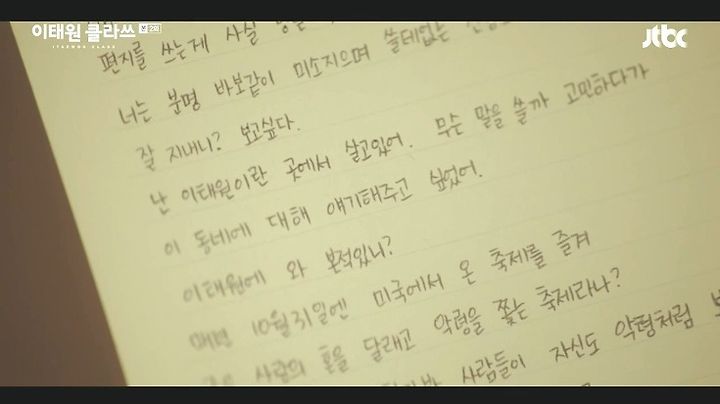 이태원 클라쓰
ITAEWON CLASS
jtbc
편지를 쓰는게 사실
너는 분명 바보같이 미소지으며 쓸데없는
잘 지내니? 보고싶다.
난 이태원이란 곳에서 살고있어. 무슨 말을 쓸까 고민하다가
이 동네에 대해 얘기해주고 싶었어.
이태원에 와 본적있니?
매년 10월 31일엔 미국에서 온 축제를 즐겨
사람의 혼을 달래고 악령을 쫓는 축제라나?
사람들이 자신도 악령처럼